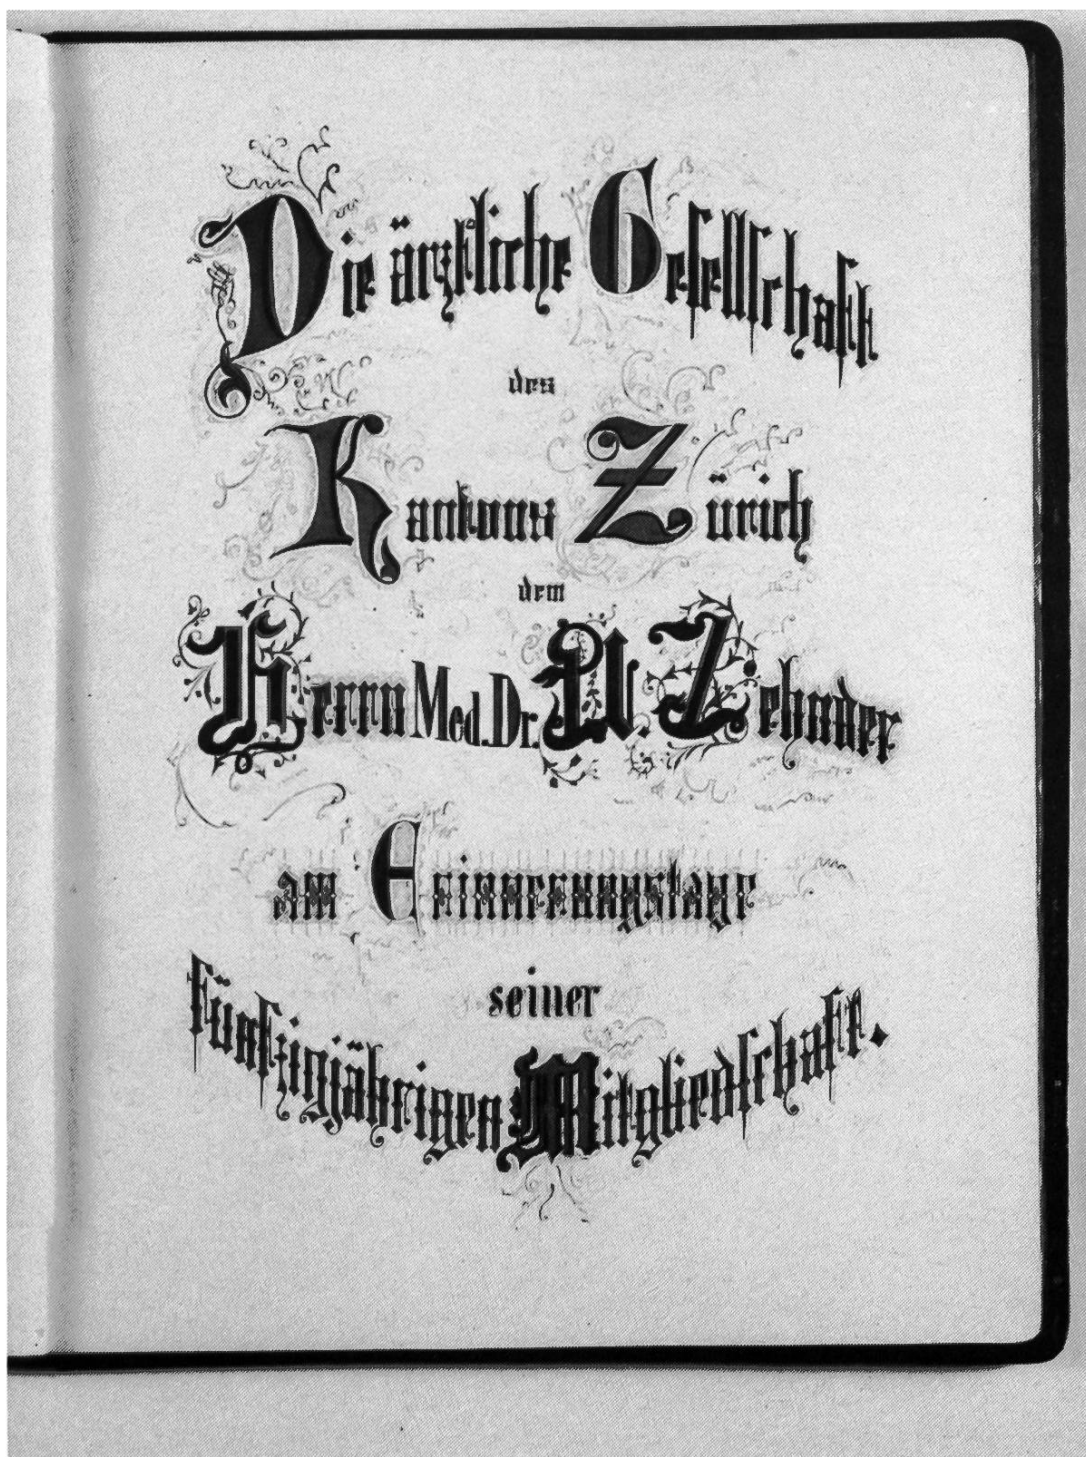 Die ärztliche Gesellschaft
des
Kantons Zürich
dem
Herrn Med. Dr. U. Zehnder
am Erinnerungstage
seiner
fünfzigjährigen Mitgliedschaft.